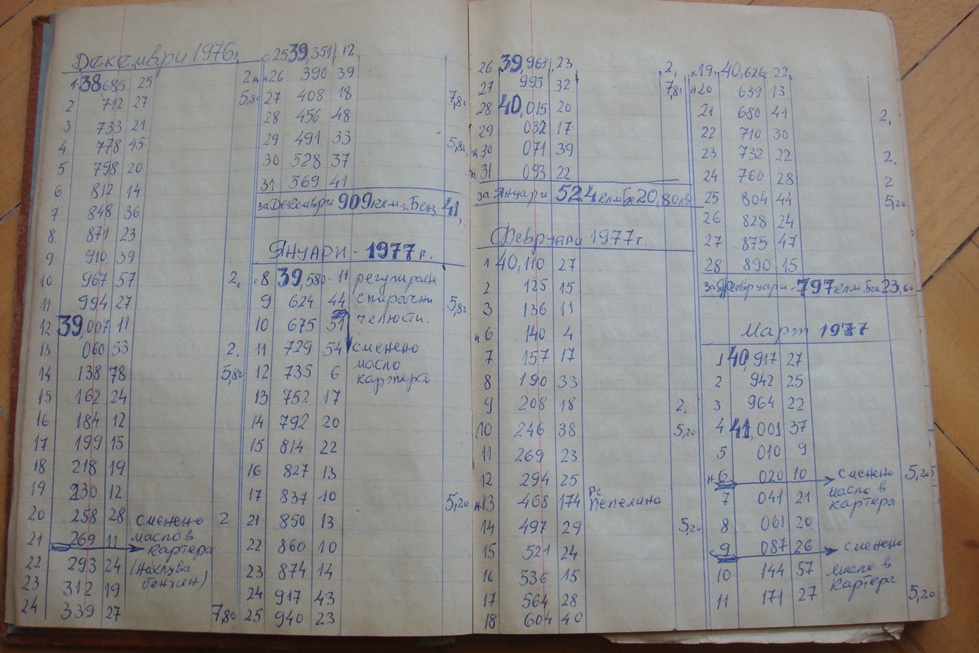 Декември 1976г.
1 38685 25
2 712 27
3 733 21
4 778 45
5 798 20
6 812 14
7 848 36
8 871 23
9 910 39
10 967 57 2.
11 994 27
12 39,007 11
13 060 53 2.
14 138 78 5,80
15 162 24
16 184 12
17 199 15
18 218 19
19 230 12
20 258 28 сменено 2
21 269 11 масло в
картера
22 293 24
бензин)
23 312 19
24 339 27 7,80
25 39,351 12
26 390 39
27 408 18 7,80
28 456 48
29 491 33 5,80
30 528 37
31 569 41
за Декември 909 клм. Бенз 41,
Януари - 1977 г.
8 39,580 - 11 регулиране
9 624 44 спирачни 5,80
10 675 51 челюсти.
11 729 54 сменено
12 735 6 масло
картера
13 752 17
14 792 20
15 814 22
16 827 13
17 837 10 5,20
21 850 13
22 860 10
23 874 14
24 917 43
25 940 23
26 39,963 23 2,
27 995 32 7,80
28 40,015 20
29 032 17
30 071 39
31 093 22
за Януари 524 клм Бе 20,80 лв
Февруари 1977 г.
1 40,110 27
2 125 15
3 136 11
6 140 4
7 157 17
8 190 33
9 208 18 2.
10 246 38 5,20
11 269 23
12 294 25
н 13 468 174 Пепелина
14 497 29 5,20
15 521 24
16 536 15
17 564 28
18 604 40
19 40,626 22
н 20 639 13
21 680 41 2,
22 710 30
23 732 22 2.
24 760 28 2
25 804 44 5,20
26 828 24
27 875 47
28 890 15
за Февруари - 797 клм. Бен 23,60
Март 1977
1 40,917 27
2 942 25
3 964 22
4 41,001 37
5 010 9
н 6 020 10 сменено 5,20
7 041 21 масло в
картера
8 061 20
9 087 26 сменено
10 144 57 масло в
картера
11 171 27 5,20